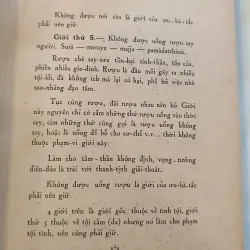 Không được nói dối là giới của ưu-bà-tắc
phải nên giữ.
Giới thứ 5.— Không được uống rượu say
người. Surā — meraya — majja — pamādaṭṭhānā.
Rượu chè say-sưa tổn-hại tinh-thần, tốn của,
phiền nhiễu gia-đình. Rượu là đầu mối gây ra nhiều
tội-lỗi, đã không ích mà lại có hại, phế bỏ việc nhà
sao-nhãng đạo tâm.
Tục cúng rượu, đãi rượu nhau nên bỏ. Giới
này nguyên chỉ có cấm những thứ rượu uống vào thời
say. Cho nên những thứ rượu gì uống không
say, hoặc là uống để bổ cho cơ-thể v.v... thời không
thuộc phạm-vi giới này.
Làm cho tâm-thần không định, vọng-tưởng
điên-đảo là trái với thanh-tịnh giải-thoát.
Không được uống rượu là giới của ưu-bà-tắc
phải nên giữ.
4 giới trên là giới gốc thuộc về tính tội, giới
thứ 5 thuộc về tội cấm (da) nhưng nó làm cho phạm
tội tính, nên cũng phải giữ.